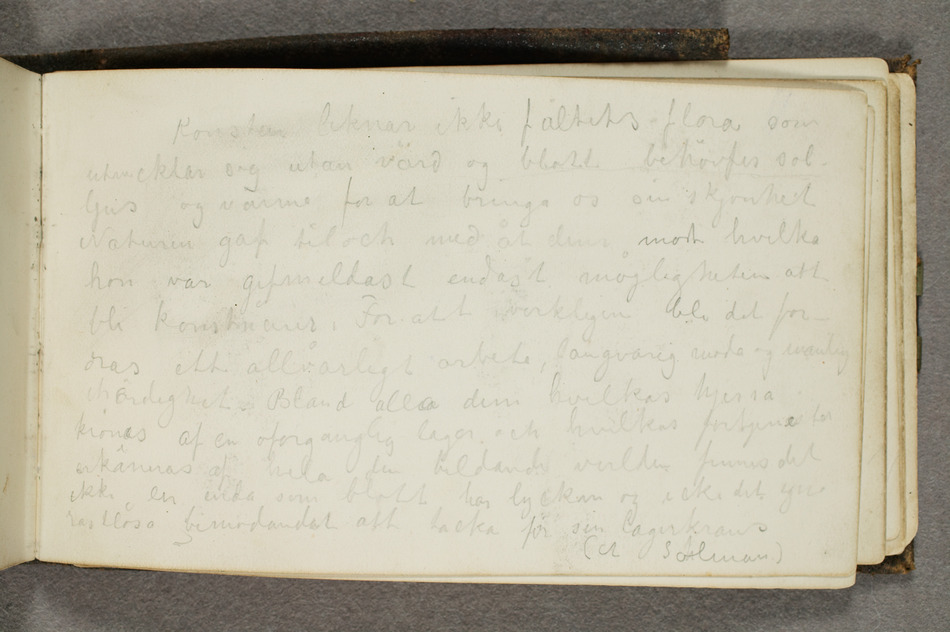 Konsten liknar ikke fältets flora som
utvecklar sig utan vård og blott behöfver sol-
ljus og varme for at bringe os sin skjonhet
Naturen gaf til och med åt dem mot hvilka
hon var gifmildast endast möjligheten att
bli konstnärer. For att verkligen bli det for-
dras ett allvarligt arbete, långvarig möda og manlig
ihärdighet. Bland alla dem hvilkas hjessa
krönes af en oforganglig lager och hvilkas fortjenster
erkännas af hela den bildande verlden finnes det
ikke en enda som blott har lyckan og icke det
rastlösa bemödandet att tacka för sin lagerkrans
(